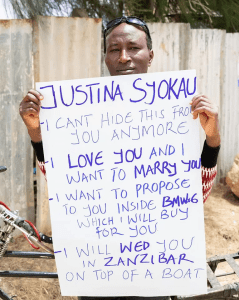 JUSTINA SYOKAU
- I CANT HIDE THIS FROM
YOU ANYMORE
- I LOVE YOU AND I
WANT TO MARRY YOU
- I WANT TO PROPOSE
TO YOU INSIDE BMW
WHICH I WILL BUY
FOR YOU
- I WILL WED YOU
IN ZANZIBAR
ON TOP OF A BOAT